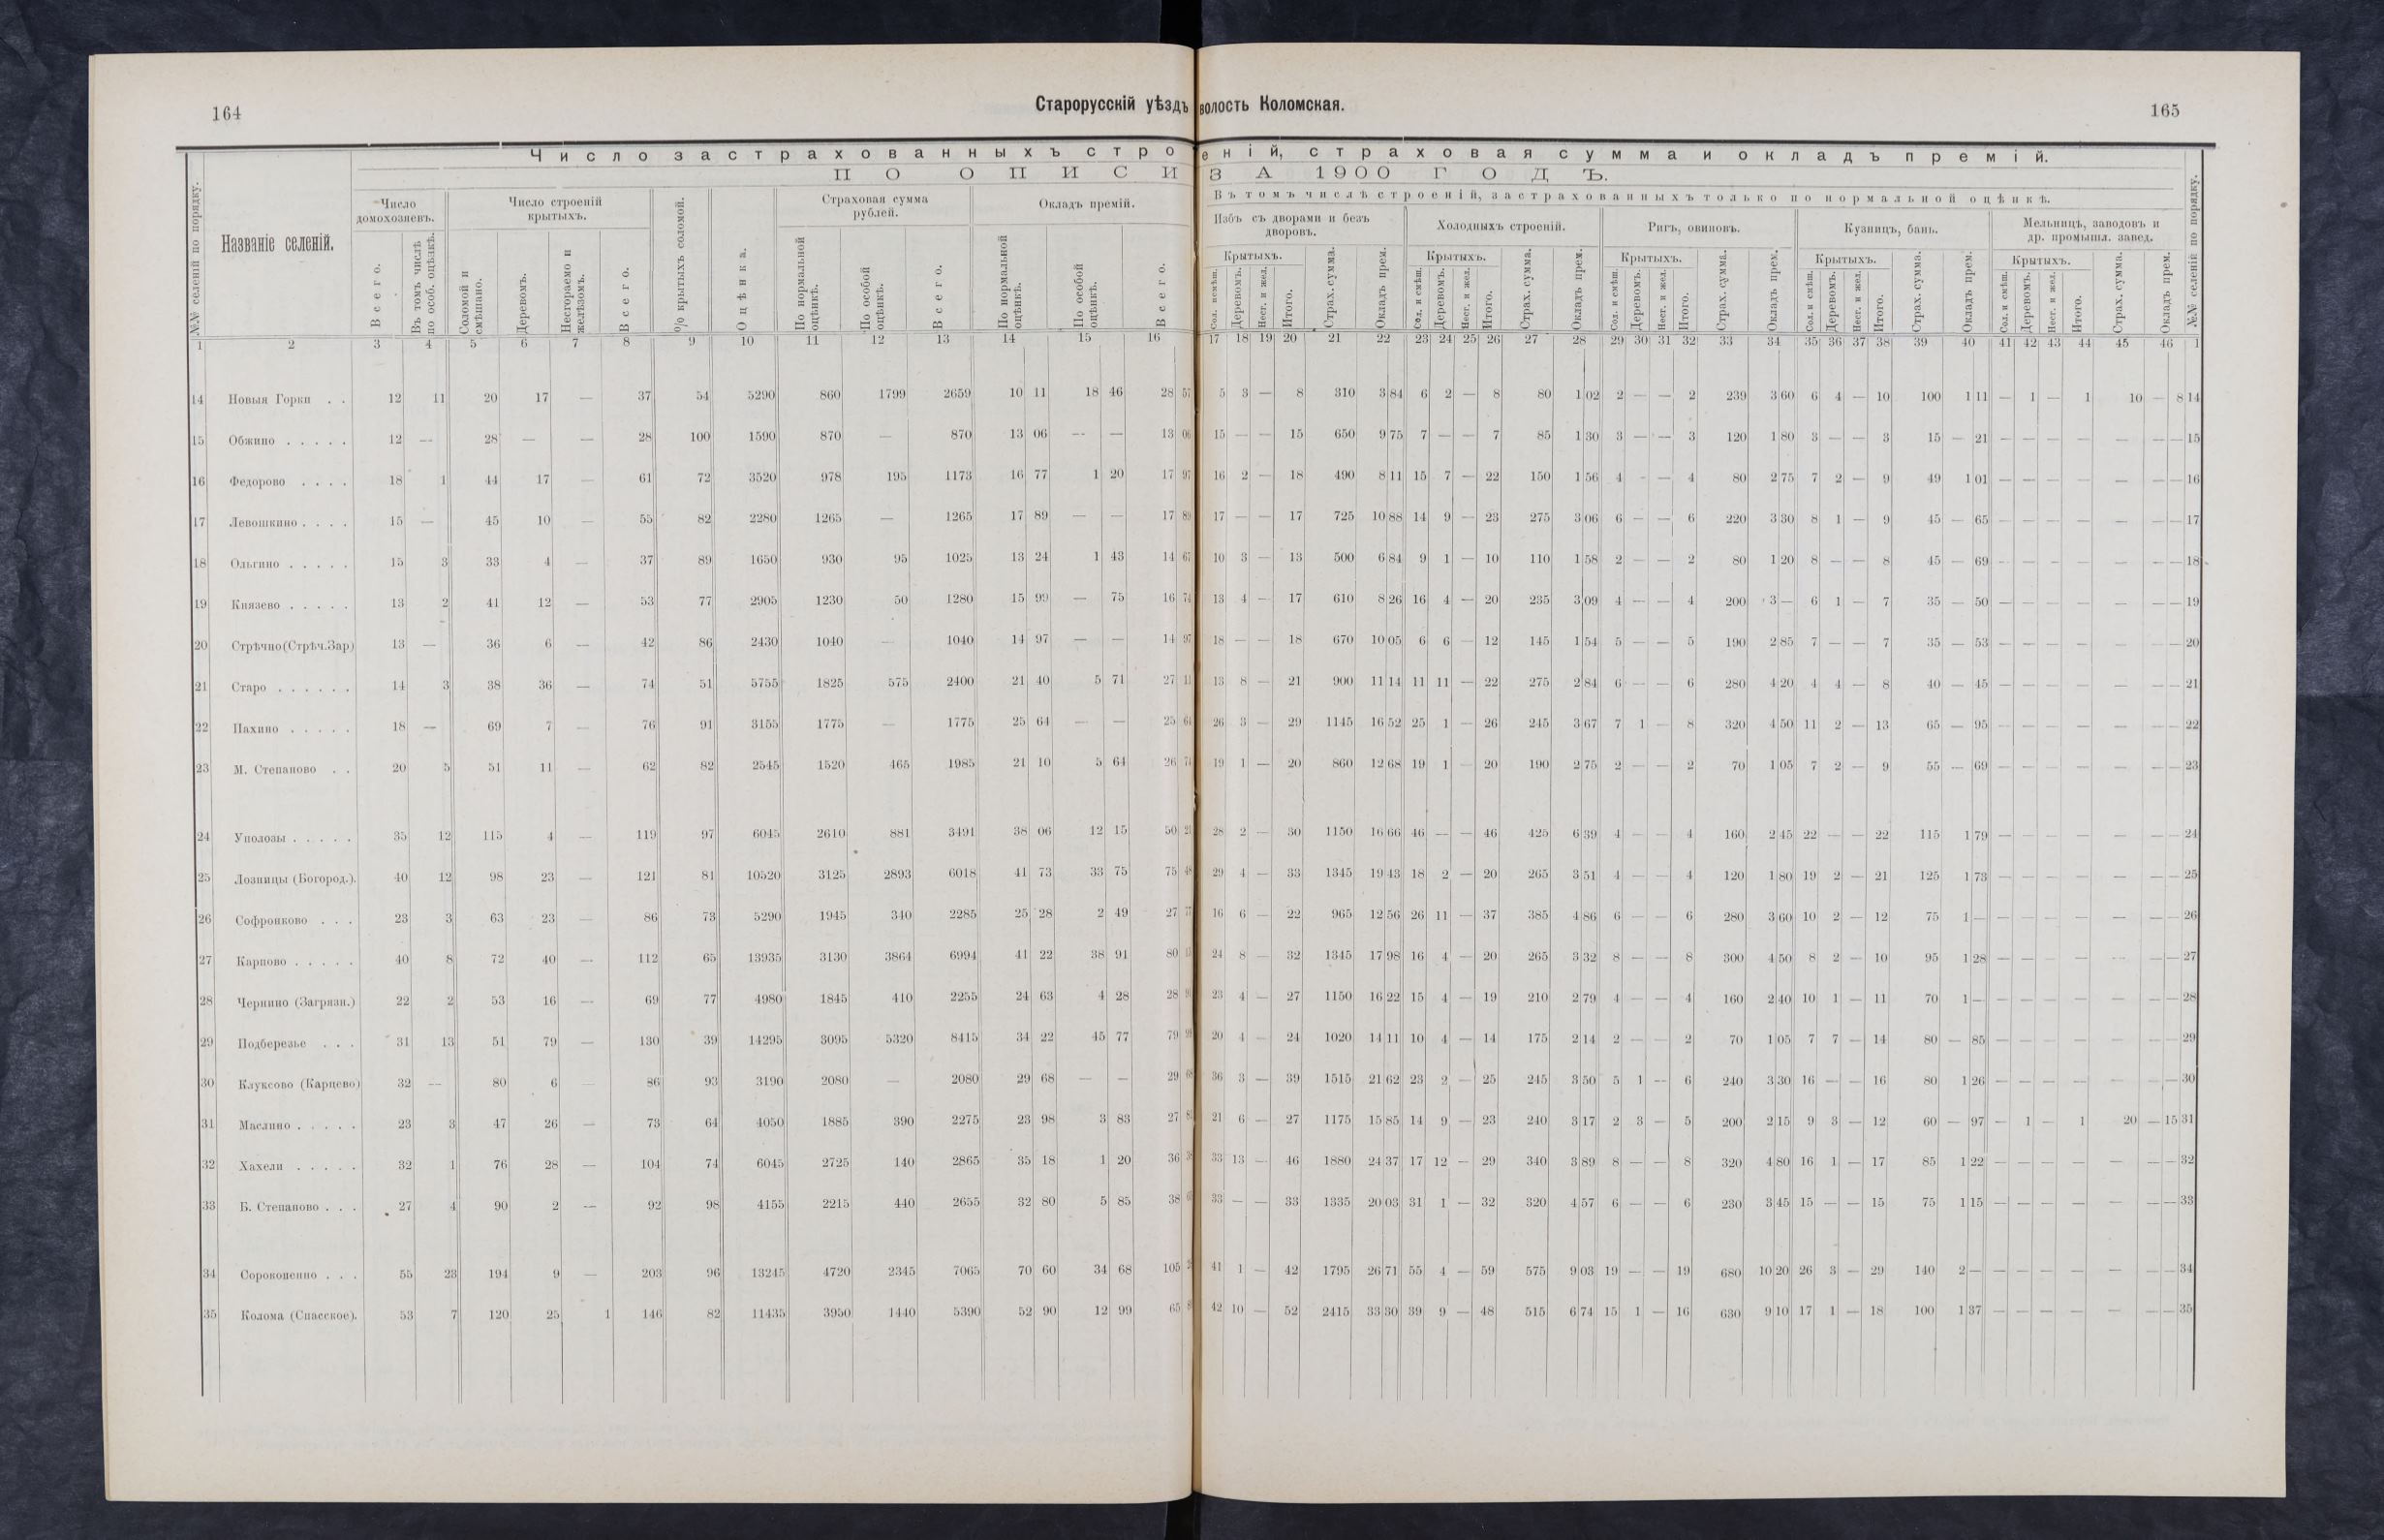 164
Старорусскій уѣздъ волость Коломская.
165
Число застрахованныхъ строеній, страховая сумма и окладъ премій.
ПО ОПИСИ ЗА 1900 ГОДЪ.
Въ томъ числѣ строеній, застрахованныхъ только по нормальной оцѣнкѣ.
№№ селеній по порядку.
Названіе селеній.
Число домохозяевъ.
Всего.
Въ томъ числѣ по особ. оцѣнкѣ.
Число строеній крытыхъ.
Соломой и смѣшано.
Деревомъ.
Несгораемо и желѣзомъ.
Всего.
% крытыхъ соломой.
Оцѣнка.
Страховая сумма рублей.
По нормальной оцѣнкѣ.
По особой оцѣнкѣ.
Всего.
Окладъ премій.
По нормальной оцѣнкѣ.
По особой оцѣнкѣ.
Всего.
Избъ съ дворами и безъ дворовъ.
Крытыхъ.
Деревомъ.
Несг. и жел.
Итого.
Страх. сумма.
Окладъ прем.
Холодныхъ строеній.
Крытыхъ.
Сол. и смѣш.
Деревомъ.
Несг. и жел.
Итого.
Страх. сумма.
Окладъ прем.
Ригъ, овиновъ.
Крытыхъ.
Сол. и смѣш.
Деревомъ.
Несг. и жел.
Итого.
Страх. сумма.
Окладъ прем.
Кузницъ, бань.
Крытыхъ.
Сол. и смѣш.
Деревомъ.
Несг. и жел.
Итого.
Страх. сумма.
Окладъ прем.
Мельницъ, заводовъ и др. промышл. завед.
Крытыхъ.
Сол. и смѣш.
Деревомъ.
Несг. и жел.
Итого.
Страх. сумма.
Окладъ прем.
№№ селеній по порядку.
1 2 3 4 5 6 7 8 9 10 11 12 13 14 15 16 17 18 19 20 21 22 23 24 25 26 27 28 29 30 31 32 33 34 35 36 37 38 39 40 41 42 43 44 45 46 1
14 Новыя Горки . . 12 11 20 17 — 37 54 5290 860 1799 2659 10 11 18 46 28 57 5 3 — 8 310 3 84 6 2 — 8 80 1 02 2 — — 2 239 3 60 6 4 — 10 100 1 11 — 1 — 1 10 — 8 14
15 Обжино . . . . . 12 — 28 — — 28 100 1590 870 — 870 13 06 — — 13 06 15 — — 15 650 9 75 7 — — 7 85 1 30 3 — — 3 120 1 80 3 — — 3 15 — 21 — — — — — — — 15
16 Федорово . . . . 18 1 44 17 — 61 72 3520 978 195 1173 16 77 1 20 17 97 16 2 — 18 490 8 11 15 7 — 22 150 1 56 4 - — 4 80 2 75 7 2 — 9 49 1 01 — — — — — — — 16
17 Левошкино . . . . 15 — 45 10 — 55 82 2280 1265 — 1265 17 89 — — 17 89 17 — — 17 725 10 88 14 9 — 23 275 3 06 6 — — 6 220 3 30 8 1 — 9 45 — 65 — — — — — — — 17
18 Ольгино . . . . . 15 3 33 4 — 37 89 1650 930 95 1025 13 24 1 43 14 67 10 3 — 13 500 6 84 9 1 — 10 110 1 58 2 — — 2 80 1 20 8 — — 8 45 — 69 — — — — — — — 18
19 Князево . . . . . 13 2 41 12 — 53 77 2905 1230 50 1280 15 99 — 75 16 74 13 4 — 17 610 8 26 16 4 — 20 235 3 09 4 — — 4 200 3 — 6 1 — 7 35 — 50 — — — — — — — 19
20 Стрѣчно(Стрѣч.Зар) 13 — 36 6 — 42 86 2430 1040 — 1040 14 97 — — 14 97 18 — — 18 670 10 05 6 6 — 12 145 1 54 5 — — 5 190 2 85 7 — — 7 35 — 53 — — — — — — — 20
21 Старо . . . . . . 14 3 38 36 — 74 51 5755 1825 575 2400 21 40 5 71 27 11 13 8 — 21 900 11 14 11 11 — 22 275 2 84 6 — — 6 280 4 20 4 4 — 8 40 — 45 — — — — — — — 21
22 Пахино . . . . . 18 — 69 7 — 76 91 3155 1775 — 1775 25 64 — — 25 64 26 3 — 29 1145 16 52 25 1 — 26 245 3 67 7 1 — 8 320 4 50 11 2 — 13 65 — 95 — — — — — — — 22
23 М. Степаново . . 20 5 51 11 — 62 82 2545 1520 465 1985 21 10 5 64 26 74 19 1 — 20 860 12 68 19 1 — 20 190 2 75 2 — — 2 70 1 05 7 2 — 9 55 — 69 — — — — — — — 23
24 Уполозы . . . . . 35 12 115 4 — 119 97 6045 2610 881 3491 38 06 12 15 50 21 28 2 — 30 1150 16 66 46 — — 46 425 6 39 4 — — 4 160 2 45 22 — — 22 115 1 79 — — — — — — — 24
25 Лозницы (Богород.). 40 12 98 23 — 121 81 10520 3125 2893 6018 41 73 33 75 75 48 29 4 — 33 1345 19 43 18 2 — 20 265 3 51 4 — — 4 120 1 80 19 2 — 21 125 1 73 — — — — — — — 25
26 Софронково . . . 23 3 63 23 — 86 73 5290 1945 340 2285 25 28 2 49 27 77 16 6 — 22 965 12 56 26 11 — 37 385 4 86 6 — — 6 280 3 60 10 2 — 12 75 1 — — — — — — — — 26
27 Карпово . . . . . 40 8 72 40 — 112 65 13935 3130 3864 6994 41 22 38 91 80 24 8 — 32 1345 17 98 16 4 — 20 265 3 32 8 — — 8 300 4 50 8 2 — 10 95 1 28 — — — — — — — 27
28 Чернино (Загрязн.) 22 2 53 16 — 69 77 4980 1845 410 2255 24 63 4 28 28 23 4 — 27 1150 16 22 15 4 — 19 210 2 79 4 — — 4 160 2 40 10 1 — 11 70 1 — — — — — — — — 28
29 Подберезье . . . 31 13 51 79 — 130 39 14295 3095 5320 8415 34 22 45 77 79 20 4 — 24 1020 14 11 10 4 — 14 175 2 14 2 — — 2 70 1 05 7 7 — 14 80 — 85 — — — — — — — 29
30 Клуксово (Карцево) 32 — 80 6 — 86 93 3190 2080 — 2080 29 68 — — 29 68 36 3 — 39 1515 21 62 23 2 — 25 245 3 50 5 1 — 6 240 3 30 16 — — 16 80 1 26 — — — — — — — 30
31 Маслино . . . . . 23 3 47 26 — 73 64 4050 1885 390 2275 23 98 3 83 27 21 6 — 27 1175 15 85 14 9 — 23 240 3 17 2 3 — 5 200 2 15 9 3 — 12 60 — 97 — 1 — 1 20 — 15 31
32 Хахели . . . . . 32 1 76 28 — 104 74 6045 2725 140 2865 35 18 1 20 36 33 13 — 46 1880 24 37 17 12 — 29 340 3 89 8 — — 8 320 4 80 16 1 — 17 85 1 22 — — — — — — — 32
33 Б. Степаново . . . 27 4 90 2 — 92 98 4155 2215 440 2655 32 80 5 85 38 33 — — 33 1335 20 03 31 1 — 32 320 4 57 6 — — 6 230 3 45 15 — — 15 75 1 15 — — — — — — — 33
34 Сорокопенно . . . 55 23 194 9 — 203 96 13245 4720 2345 7065 70 60 34 68 105 41 1 — 42 1795 26 71 55 4 — 59 575 9 03 19 — — 19 680 10 20 26 3 — 29 140 2 — — — — — — — — 34
35 Колома (Спасское). 53 7 120 25 1 146 82 11435 3950 1440 5390 52 90 12 99 65 42 10 — 52 2415 33 30 39 9 — 48 515 6 74 15 1 — 16 630 9 10 17 1 — 18 100 1 37 — — — — — — — 35